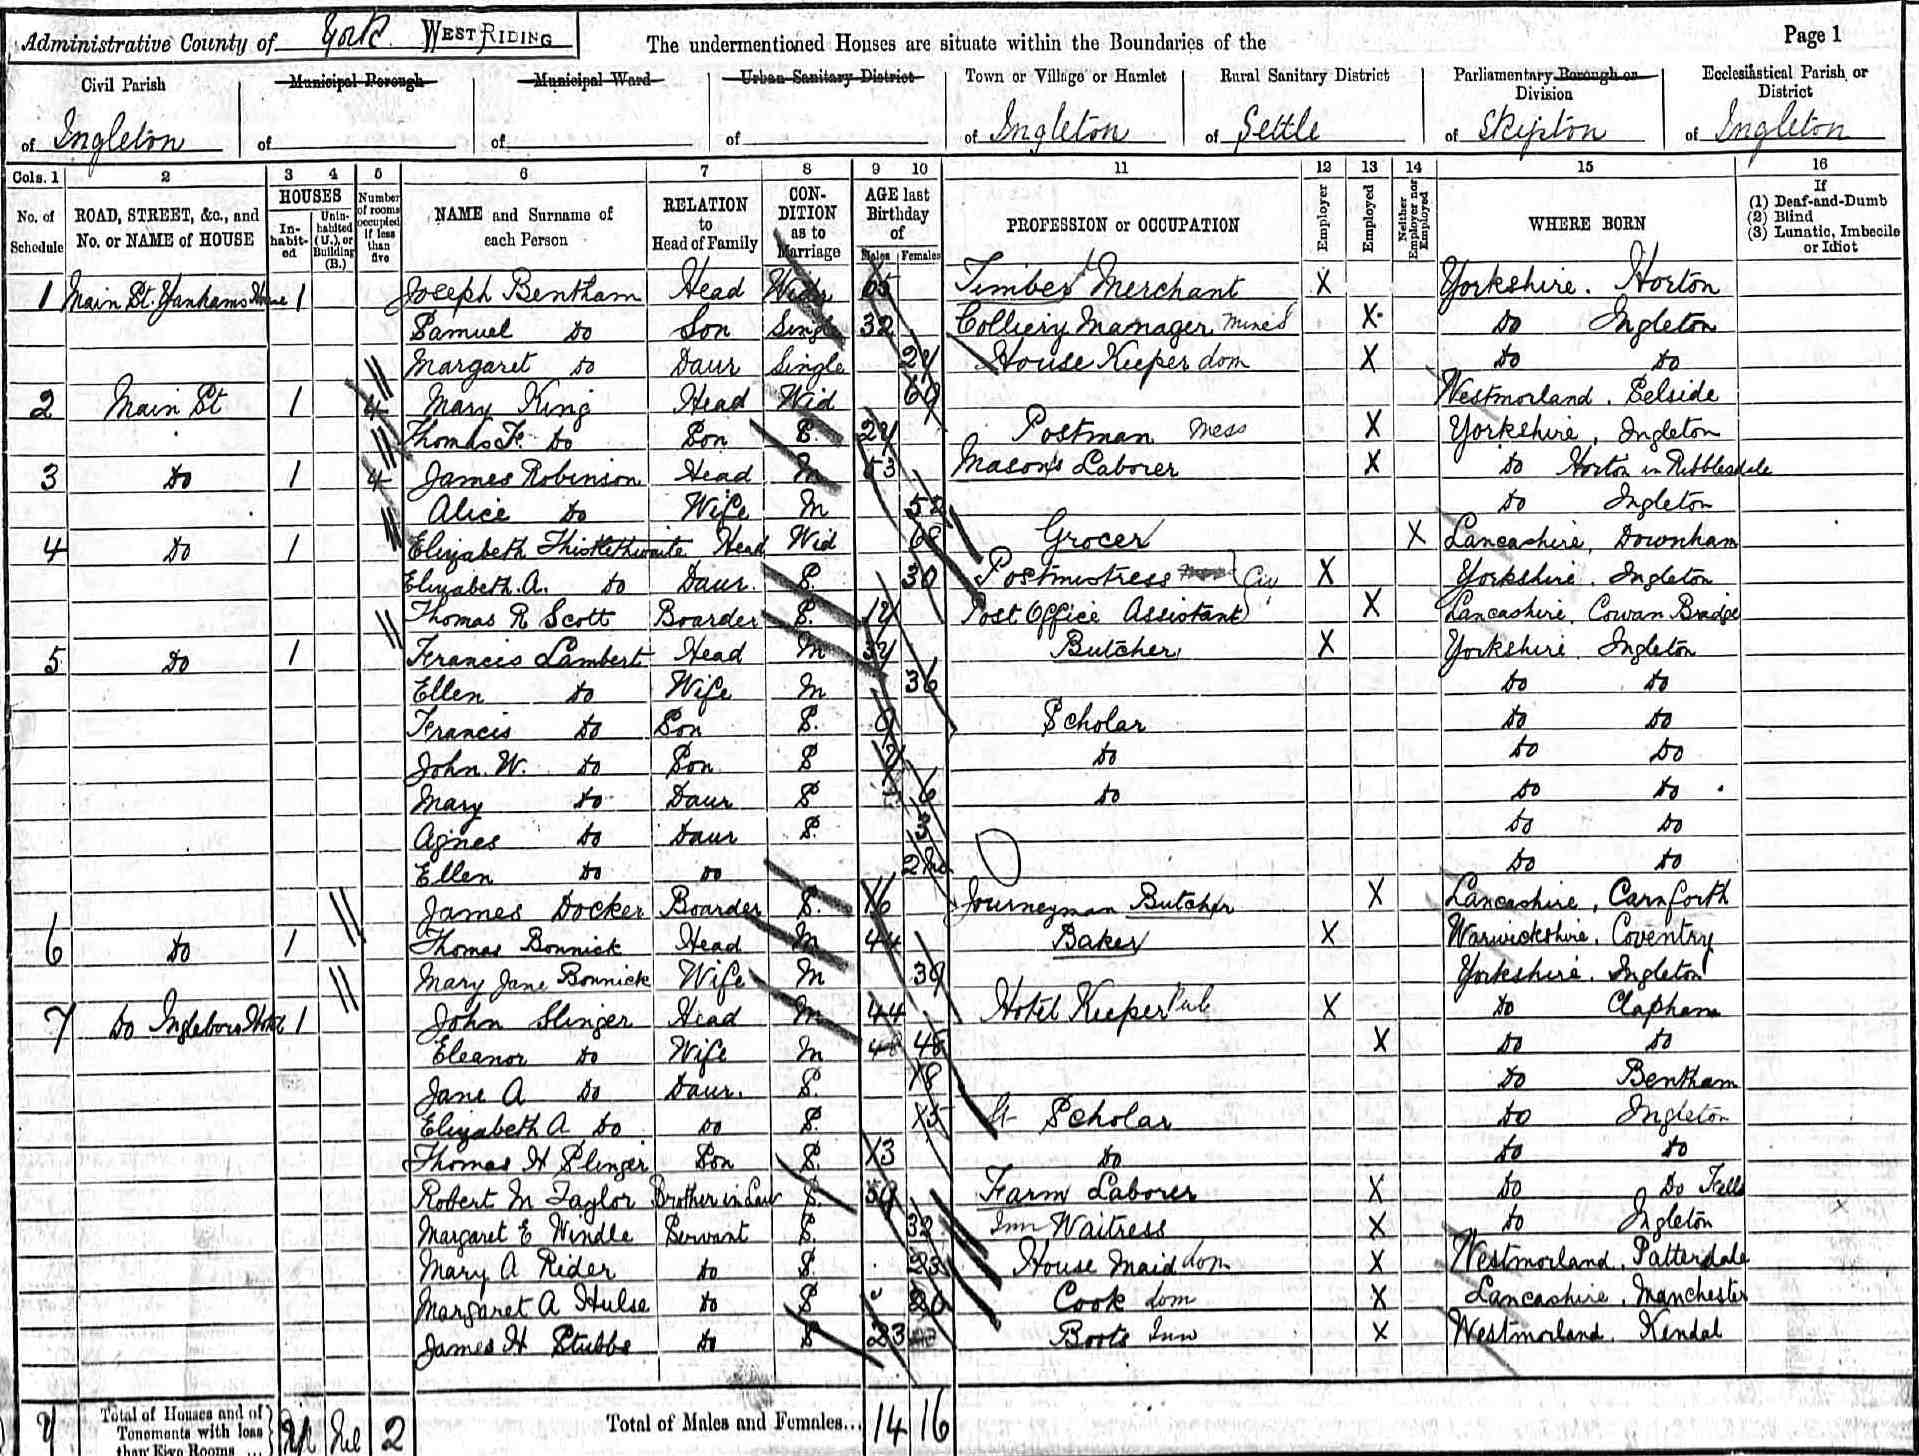 Administrative County of York WEST RIDING The undermentioned Houses are situate within the Boundaries of the Page 1
Civil Parish Municipal Borough Municipal Ward Urban Sanitary District Town or Village or Hamlet Rural Sanitary District Parliamentary Borough or Division Ecclesiastical Parish or District
of Ingleton of of of of Ingleton of Settle of Skipton of Ingleton
Cols. 1 2 3 4 5 6 7 8 9 10 11 12 13 14 15 16
No. of Schedule ROAD, STREET, &c., and No. or NAME of HOUSE HOUSES Inhabited Uninhabited (U.), or Building (B.) Number of rooms occupied if less than five NAME and Surname of each Person RELATION to Head of Family CONDITION as to Marriage AGE last Birthday of Males Females PROFESSION or OCCUPATION Employer Employed Neither Employer nor Employed WHERE BORN If (1) Deaf-and-Dumb (2) Blind (3) Lunatic, Imbecile or Idiot
1 Main St. 1 Joseph Bentham Head Widr 65 Timber Merchant X Yorkshire. Horton
Samuel Do Son Single 32 Colliery Manager Mines X Do Ingleton
Margaret Do Daur Single House Keeper dom X Do Do
2 Main St 1 4 Mary King Head Wid Westmorland. Selside
Thomas F. Do Son S. Postman Mess X Yorkshire, Ingleton
3 Do 1 4 James Robinson Head M 53 Mason's Laborer X Do Horton in Ribblesdale
Alice Do Wife M 52 Do Ingleton
4 Do 1 Elizabeth Thistlethwaite Head Wid Grocer X Lancashire, Downham
Elizabeth. A. Do Daur. S. 30 Postmistress Civ X Yorkshire. Ingleton
Thomas R Scott Boarder S. Post Office Assistant X Lancashire. Cowan Bridge
5 Do 1 Francis Lambert Head M Butcher X Yorkshire. Ingleton
Ellen Do Wife M 36 Do Do
Francis Do Son S. 9 Scholar Do Do
John. W. Do Son S Do Do Do
Mary Do Daur S 6 Do Do Do
Agnes Do Daur S. Do Do
Ellen Do Do 2 Mo Do Do
James Docker Boarder S. 16 Journeyman Butcher X Lancashire, Carnforth
6 Do 1 Thomas Bonnick Head M 44 Baker X Warwickshire. Coventry
Mary Jane Bonnick Wife M 39 Yorkshire. Ingleton
7 Do Ingleboro Hotel 1 John Slinger Head M 44 Hotel Keeper Pub X Do Clapham
Eleanor Do Wife M 48 48 X Do Do
Jane A Do Daur. S. 18 Do Bentham
Elizabeth A Do Do S. 15 Scholar Do Ingleton
Thomas H Slinger Son S. 13 Do Do Do
Robert M Taylor Brother in Law S. 39 Farm Laborer X Do Do Fells
Margaret E Windle Servant S. 32 Inn Waitress X Do Ingleton
Mary A Rider Do S. 23 House Maid dom X Westmorland. Patterdale
Margaret A Hulse Do S 20 Cook dom X Lancashire, Manchester
James H Stubbs Do S 23 Boots Inn X Westmorland. Kendal
Total of Houses and of Tenements with less than Five Rooms 2 Total of Males and Females... 14 16